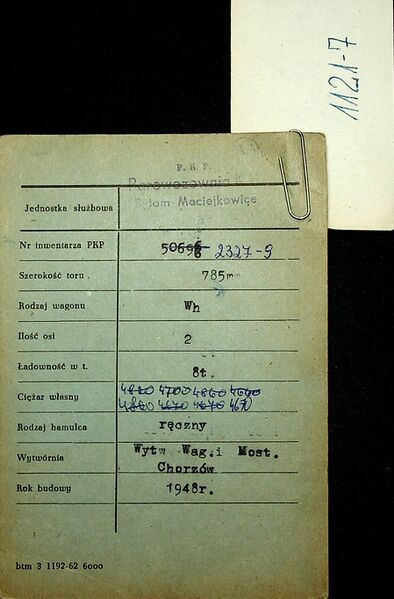 1121-7
P. K. P.
Parowozownia
Bytom Maciejkowice
Jednostka służbowa
Nr inwentarza PKP 2327-9
Szerokość toru 785m
Rodzaj wagonu Wh
Ilość osi 2
Ładowność w t. 8t.
Ciężar własny 4820 4700 4860 4660
4800 4670 4670 4670
Rodzaj hamulca ręczny
Wytwórnia Wytw Wag.i Most.
Chorzów
Rok budowy 1948r.
btm 3 1192-62 6000